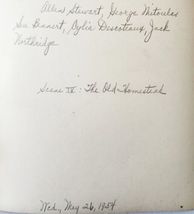 Allen Stewart, George Nitoulas
Sue Bennert, Lylia Descoteaux, Jack
Northridge
Scene IV: The Old Homestead
Wed, May 26, 1954